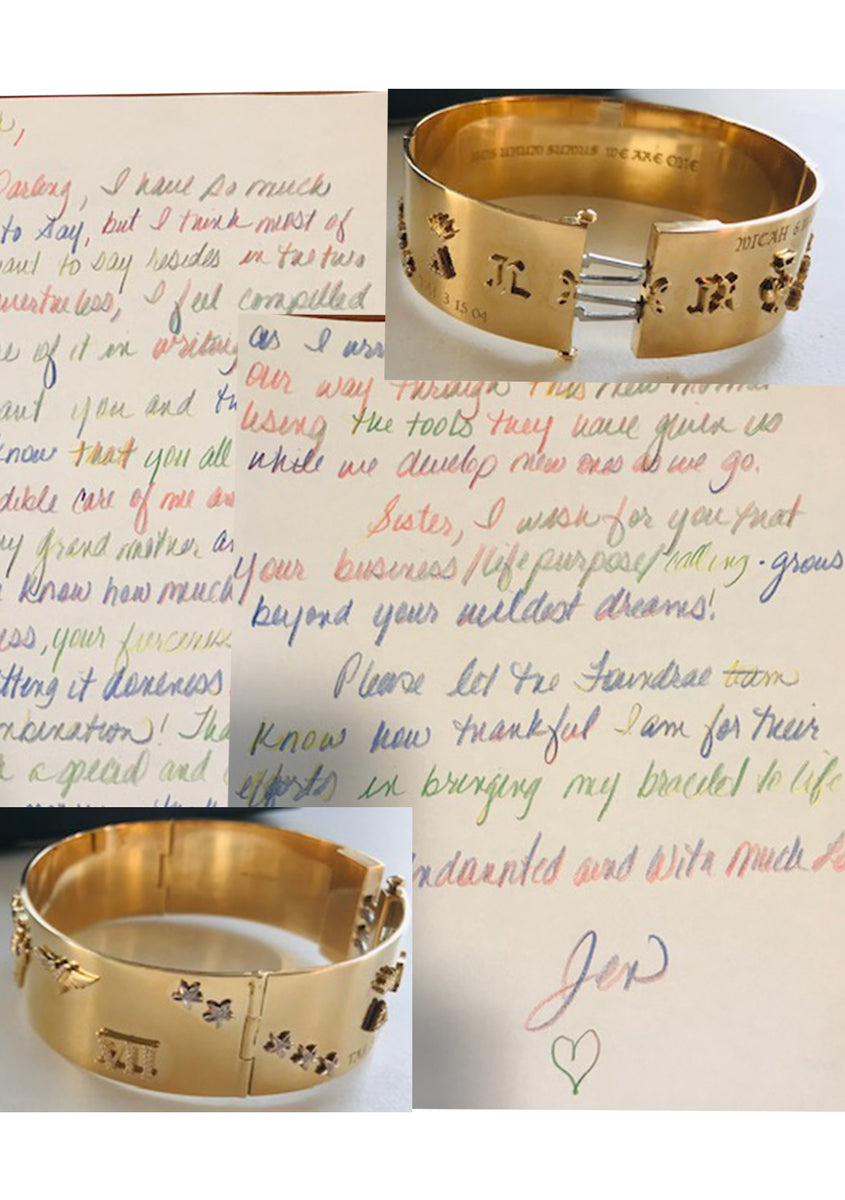 Darling, I have so much
to say, but I think most of
want to say resides in the two
nevertheless, I feel compelled
e of it in writing
ant you and th
know that you all
dible care of me an
my grand mother an
know how much
ess, your fierceness
tting it doneness
mbination! Tha
a special and
as I wri
our way through this new normal
using the tools they have given us
while we develop new ones as we go.
Sister, I wish for you that
your business/life purpose/calling grows
beyond your wildest dreams!
Please let the Foundrae team
know how thankful I am for their
efforts in bringing my bracelet to life
Undaunted and With Much Lo
Jen
NOS UNUM SUMUS WE ARE ONE
MICAH 6
3 15 04